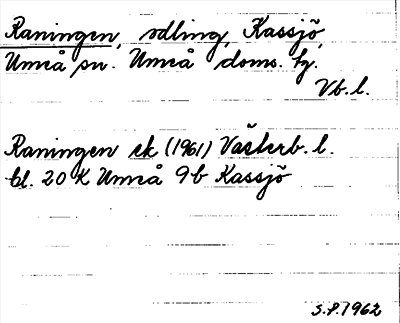 Raningen, odling, Kassjö,
Umeå sn. Umeå doms. tg.
Vb. l.
Raningen ek (1961) Västerb. l.
bl. 20 K Umeå 9b Kassjö
S.P. 1962